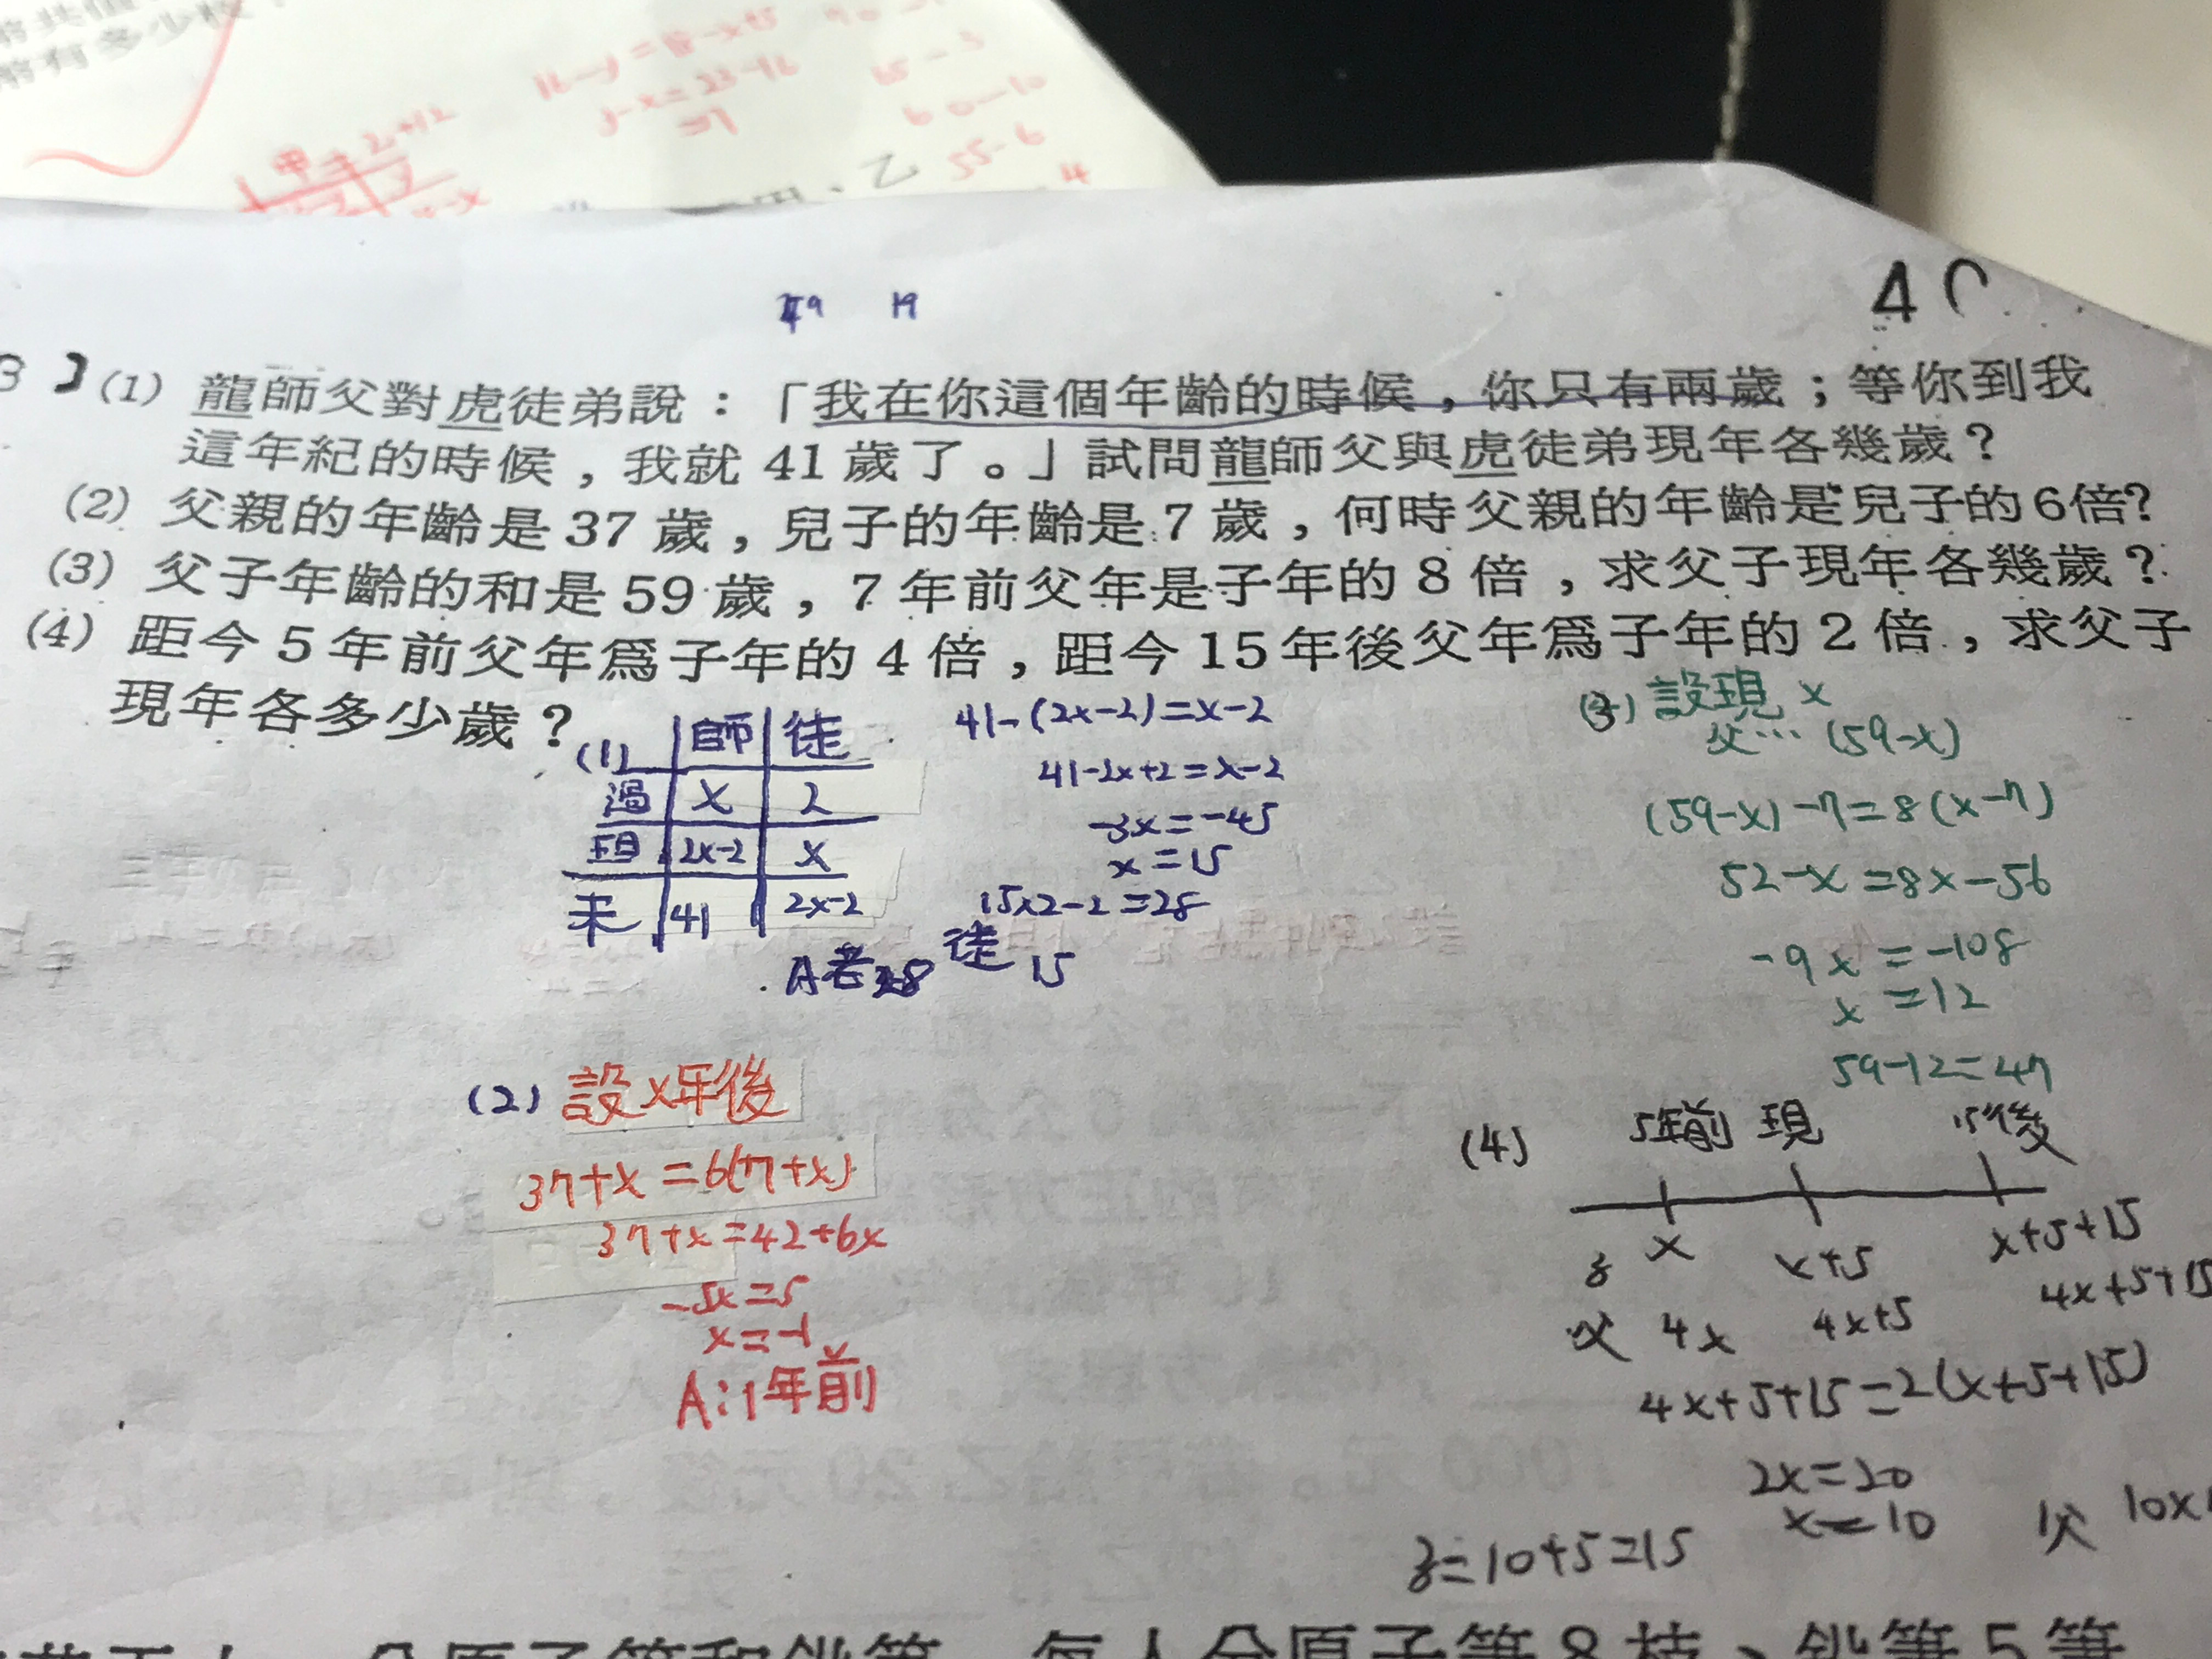 16-y=
y-x=23-16
=7
60-10
55-6
4
乙
19
40
3
(1) 龍師父對虎徒弟說：「我在你這個年齡的時候，你只有兩歲；等你到我
這年紀的時候，我就 41 歲了。」試問龍師父與虎徒弟現年各幾歲？
(2) 父親的年齡是 37 歲，兒子的年齡是 7 歲，何時父親的年齡是兒子的 6 倍?
(3) 父子年齡的和是 59 歲，7 年前父年是子年的 8 倍，求父子現年各幾歲？
(4) 距今 5 年前父年為子年的 4 倍，距今 15 年後父年為子年的 2 倍，求父子
現年各多少歲？
(1) 師 徒
過 x 2
現 2x-2 x
未 41 2x-2
41-(2x-2)=x-2
41-2x+2=x-2
-3x=-45
x=15
15x2-2=28
A老28 徒15
(3) 設現 x
父…(59-x)
(59-x)-7=8(x-7)
52-x=8x-56
-9x=-108
x=12
59-12=47
(2) 設x年後
37+x=6(7+x)
37+x=42+6x
-5x=5
x=-1
A:1年前
(4) 5年前 現 15後
子 x x+5 x+5+15
父 4x 4x+5 4x+5+15
4x+5+15=2(x+5+15)
2x=20
x=10
子=10+5=15
父 10x
每人分原子筆 8 枝、鉛筆 5 筆